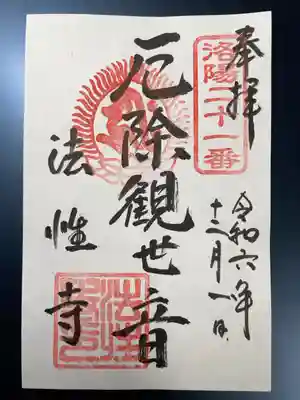 奉拝
洛陽二十一番
令和六年
十二月一日
厄除観世音
法性寺